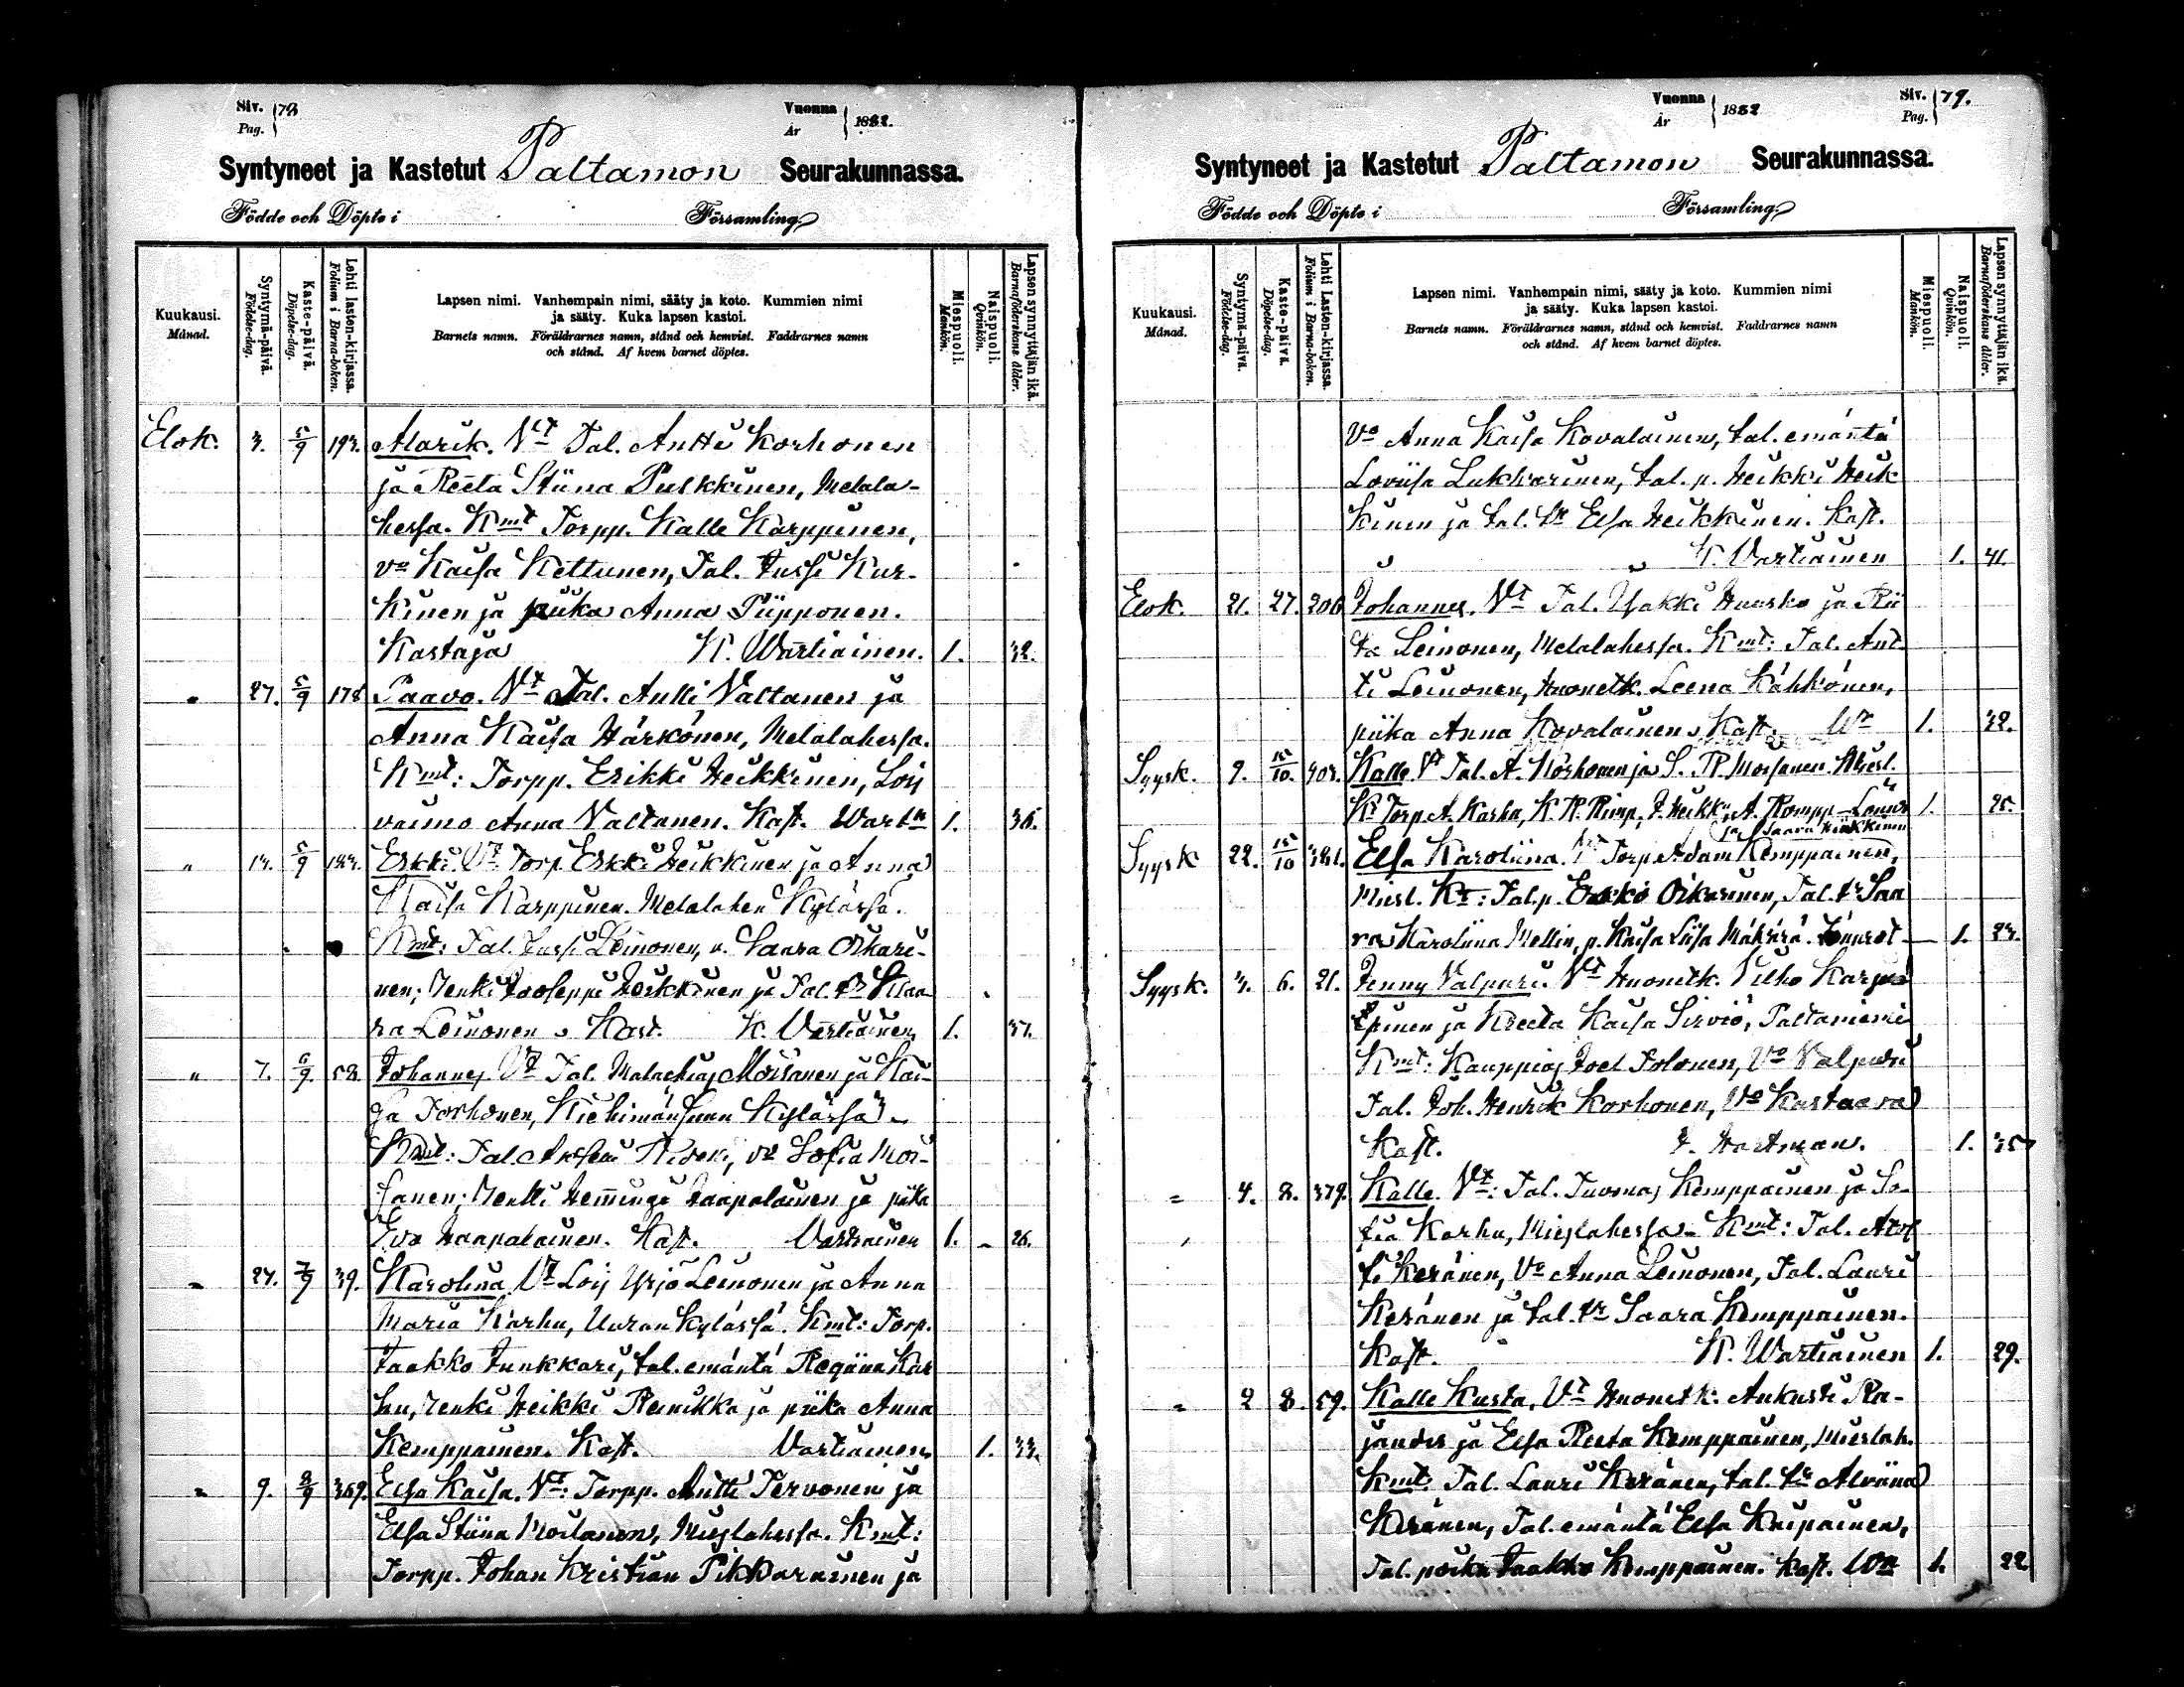 Siv. Pag. 78
Vuonna År 1882.
Syntyneet ja Kastetut Paltamon Seurakunnassa.
Födde och Döpte i Församling.
Kuukausi. Månad.
Syntymä-päivä. Födelse-dag.
Kaste-päivä. Döpelse-dag.
Lehti lasten-kirjassa. Folium i Barna-boken.
Lapsen nimi. Vanhempain nimi, sääty ja koto. Kummien nimi
ja sääty. Kuka lapsen kastoi.
Barnets namn. Föräldrarnes namn, stånd och hemvist. Faddrarnes namn
och stånd. Af hvem barnet döptes.
Miespuoli. Mankön.
Naispuoli. Qvinkön.
Lapsen synnyttäjän ikä. Barnaföderskans ålder.
Elok. 3. 5/9 193. Alarik. Vt Tal. Antti Korhonen
ja Reeta Stiina Pulkkinen, Melala-
hessa. Kmt Torpp. Kalle Karppinen,
vo Kaisa Kettunen, Tal. Jussi Kur-
kinen ja piika Anna Piipponen.
Kastaja K. Wartiainen. 1. 32.
" 27. 5/9 178 Paavo. Vt Tal. Antti Valtanen ja
Anna Kaisa Härkönen, Melalahessa.
Kmt: Torpp. Erikki Heikkinen, Lois
vaimo Anna Valtanen. Kast. Wartn 1. 36.
" 13. 5/9 183. Erkki. Vt Torp. Erkki Heikkinen ja Anna
Kaisa Karppinen. Melalahen Kylässä.
Kmt: Tal. Jussi Leinonen, v. Saara Oikari-
nen; Renki Jooseppi Heikkinen ja Tal. tr Klaa-
ra Leinonen. Kast. K. Vartiainen 1. 31.
" 7. 6/9. 58. Johannes. Vt Tal. Malachias Moisanen ja Kai-
sa Torhonen, Kiehimänsuun Kylässä.
Kmt: Tal. , vo Sofia Moi-
sanen; Renki Hemminge Haapalainen ja piika
Eva Haapalainen. Kast. Vartiainen 1. 26.
" 27. 7/9 39. Karolina. Vt Lois Yrjö Leinonen ja Anna
Maria Karhu, Uuran kylässä. Kmt: Torp.
Jaakko Junkkari, tal. emäntä Regiina Kar
hu, Renki Heikki Reinikka ja piika Anna
Kemppainen. Kast. Vartiainen. 1. 33.
" 9. 8/9 369. Elsa Kaisa. Vt: Torpp. Antti Tervonen ja
Elsa Stiina Moilanen, Mieslahessa. Kmt:
Torpp. Johan Kristian Pikkarainen ja
Vuonna År 1882
Siv. Pag. 79.
Syntyneet ja Kastetut Paltamon Seurakunnassa.
Födde och Döpte i Församling.
Kuukausi. Månad.
Syntymä-päivä. Födelse-dag.
Kaste-päivä. Döpelse-dag.
Lehti Lasten-kirjassa. Folium i Barna-boken.
Lapsen nimi. Vanhempain nimi, sääty ja koto. Kummien nimi
ja sääty. Kuka lapsen kastoi.
Barnets namn. Föräldrarnes namn, stånd och hemvist. Faddrarnes namn
och stånd. Af hvem barnet döptes.
Miespuoli. Mankön.
Naispuoli. Qvinkön.
Lapsen synnyttäjän ikä. Barnaföderskans ålder.
Vo Anna Kaisa Kovalainen, tal. emäntä
Loviisa Lukkarinen, tal. p. Heikki Heik
kinen ja tal. tr Elsa Heikkinen. Kast.
" " K. Vartiainen 1. 41.
Elok. 21. 27. 206 Johannes. Vt Tal. Isakki Huusko ja Rii
ta Leinonen, Melalahessa. Kmt: Tal. Ant
ti Leinonen, Huonetk. Leena Kähkönen,
piika Anna Kovalainen. Kast. Wn 1. 32.
Syysk. 9. 15/10. 403. Kalle. Vt Tal. A. Korhonen ja S. R. Moisanen. Miesl.
Kt Torp. A. Karhu, K. R. , J. Heikk, A. Rompp 1. 25.
ja Saara Heikkinen
Syysk 22. 15/10 381. Elsa Karoliina. Vt Torp. Adam Kemppainen,
Miesl. Kt: Tal. p. Erkki Oikarinen, Tal. tr Saa
ra Karoliina Mellin, p. Kaisa Liisa Määttä. Lönnrot — 1. 23.
Syysk. 3. 6. 21. Jenny Valpuri. Vt Huonetk. Vilho Karp
pinen ja Kreeta Kaisa Sirviö, Paltaniemi
Kmt: Kauppias Joel Tolonen, Vo Valpuri
Tal. Joh. Henrik Korhonen, Vo Kustaava
Kast. F. Hartman. 1. 35
" 4. 8. 379. Kalle. Vt: Tal. Tuomas Kemppainen ja So-
fia Karhu, Mieslahessa. Kmt: Tal. Atol
fi Keränen, Vo Anna Leinonen, Tal. Lauri
Keränen ja tal. tr Saara Kemppainen.
Kast. K. Wartiainen 1. 29.
" 2 8. 59. Kalle Kusta. Vt Huonetk: Aukusti Ra-
jander ja Elsa Reeta Kemppainen, Mieslah.
Kmt: Tal. Lauri Keränen, tal. tr Alviina
Keränen, Tal. emäntä Elsa Knipainen,
Tal. poika Jaakko Kemppainen. Kast. Wn 1. 22